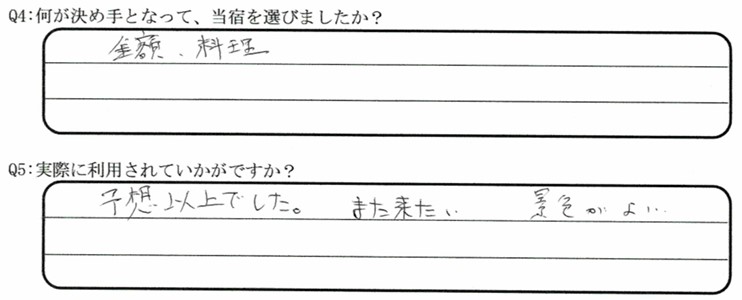 Q4:何が決め手となって、当宿を選びましたか?
金額、料理
Q5:実際に利用されていかがですか?
予想以上でした。 また来たい 景色がよい